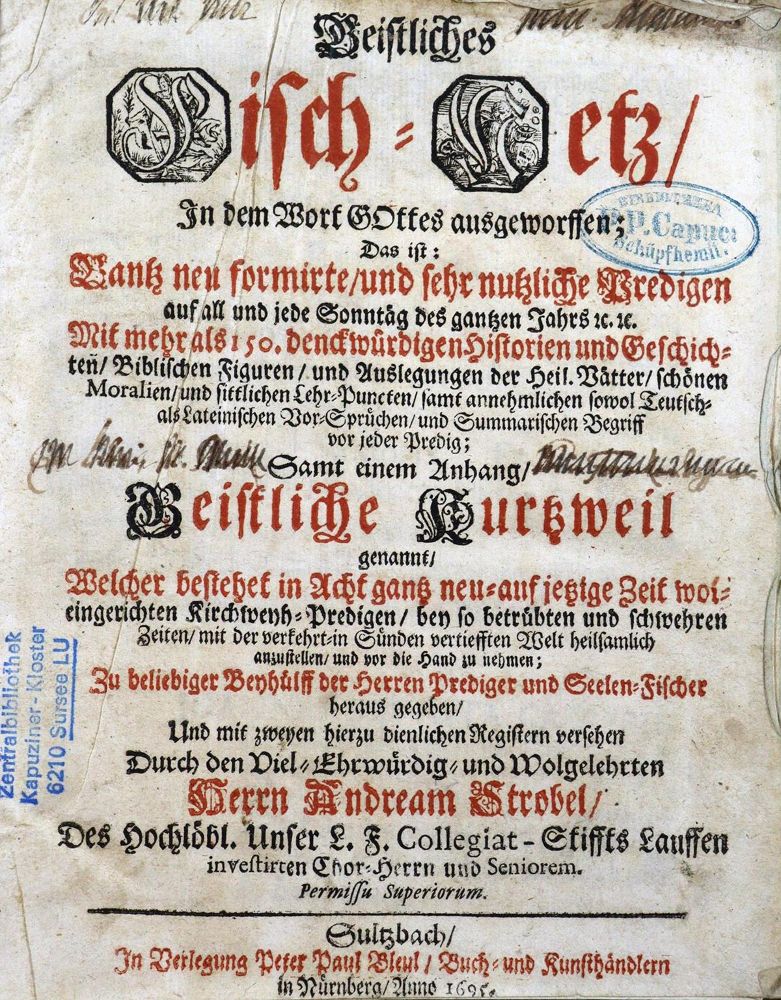 Geistliches
Fisch-Netz/
In dem Wort GOttes ausgeworffen;
Das ist:
Gantz neu formirte/und sehr nutzliche Predigen
auf all und jede Sonntäg des gantzen Jahrs ꝛc. ꝛc.
Mit mehr als 150. denckwürdigen Historien und Geschich-
ten̄/ Biblischen Figuren/ und Auslegungen der Heil. Vätter/ schönen
Moralien/ und sittlichen Lehr-Puncten/ samt annehmlichen sowol Teutsch-
als Lateinischen Vor-Sprüchen/ und Summarischen Begriff
vor jeder Predig;
Samt einem Anhang/
Geistliche Kurtzweil
genannt/
Welcher bestehet in Acht gantz neu-auf jetzige Zeit wol-
eingerichten Kirchweyh-Predigen/ bey so betrübten und schwehren
Zeiten/ mit der verkehrt-in Sünden vertiefften Welt heilsamlich
anzustellen/ und vor die Hand zu nehmen;
Zu beliebiger Beyhülff der Herren Prediger und Seelen-Fischer
heraus gegeben/
Und mit zweyen hierzu dienlichen Registern versehen
Durch den Viel-Ehrwürdig-und Wolgelehrten
Herrn Andream Strobel/
Des Hochlöbl. Unser L. F. Collegiat-Stiffts Lauffen
investirten Chor-Herrn und Seniorem.
Permissu Superiorum.
Sultzbach/
In Verlegung Peter Paul Bleul/ Buch-und Kunsthändlern
in Nürnberg/ Anno 1695.
BIBLIOTHEKA
P.P. Capuc:
Schüpfhemii.
Zentralbibliothek
Kapuziner-Kloster
6210 Sursee LU